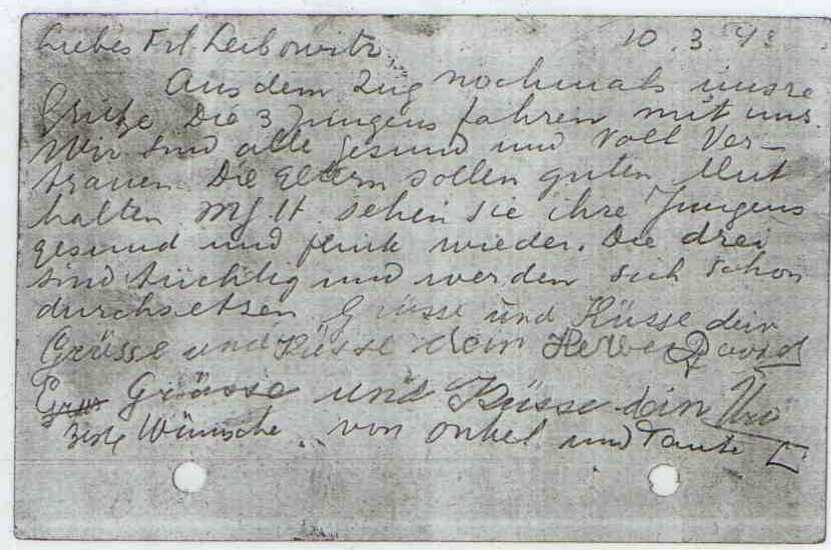 Liebes Frl Leibowitz, 10.3.43
Aus dem Zug nochmals unsre
Grüße Die 3 Jungens fahren mit uns.
Wir sind alle gesund und voll Ver-
trauen. Die Eltern sollen guten Mut
halten sehen sie ihre Jungens
gesund und flink wieder. Die drei
sind tüchtig und werden sich schon
durchsetzen Grüsse und Küsse dein
Grüsse und Küsse dein David
Grüsse und Küsse dein
Beste Wünsche von Onkel und Tante L